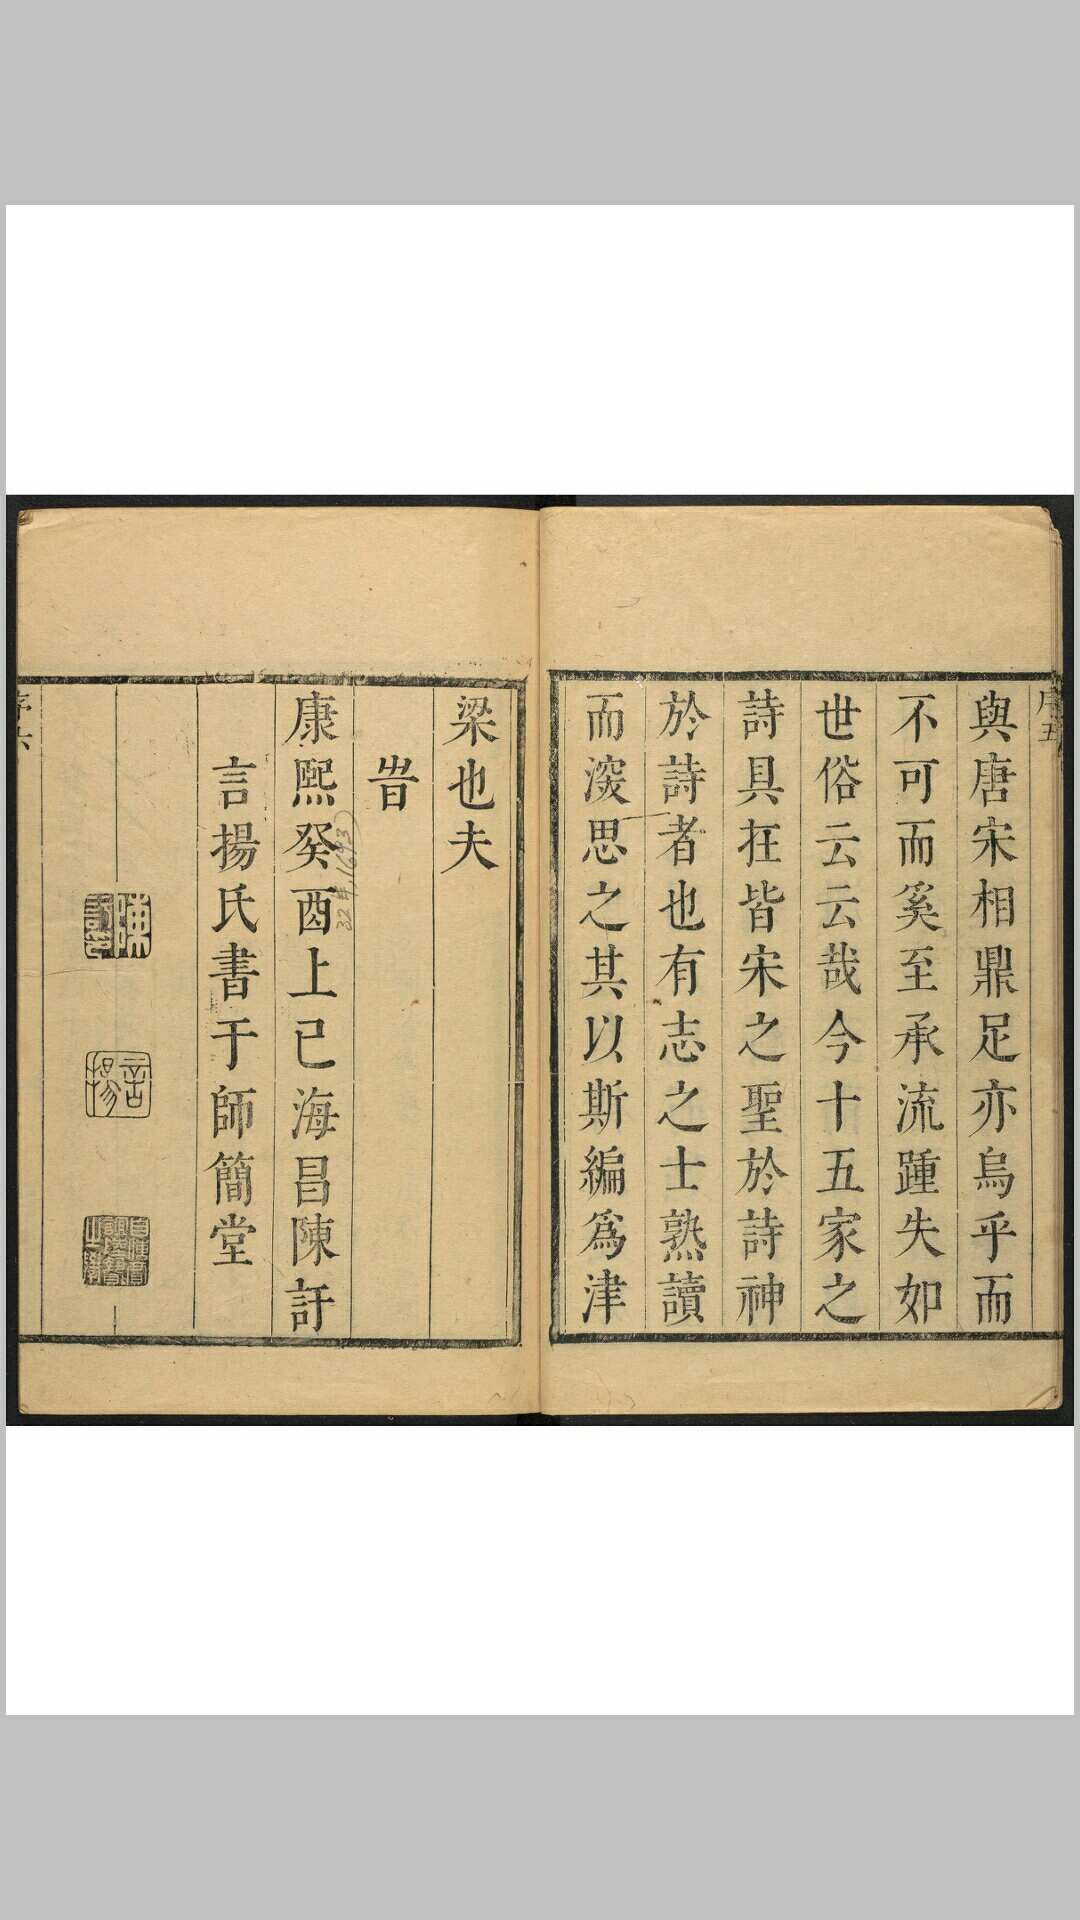 序五
與唐宋相鼎足亦烏乎而
不可而奚至承流踵失如
世俗云云哉今十五家之
詩具在皆宋之聖於詩神
於詩者也有志之士熟讀
而深思之其以斯編爲津
梁也夫
旹
康熙癸酉上巳海昌陳訏
言揚氏書于師簡堂
32年,1693)
陳訏
言揚
序六